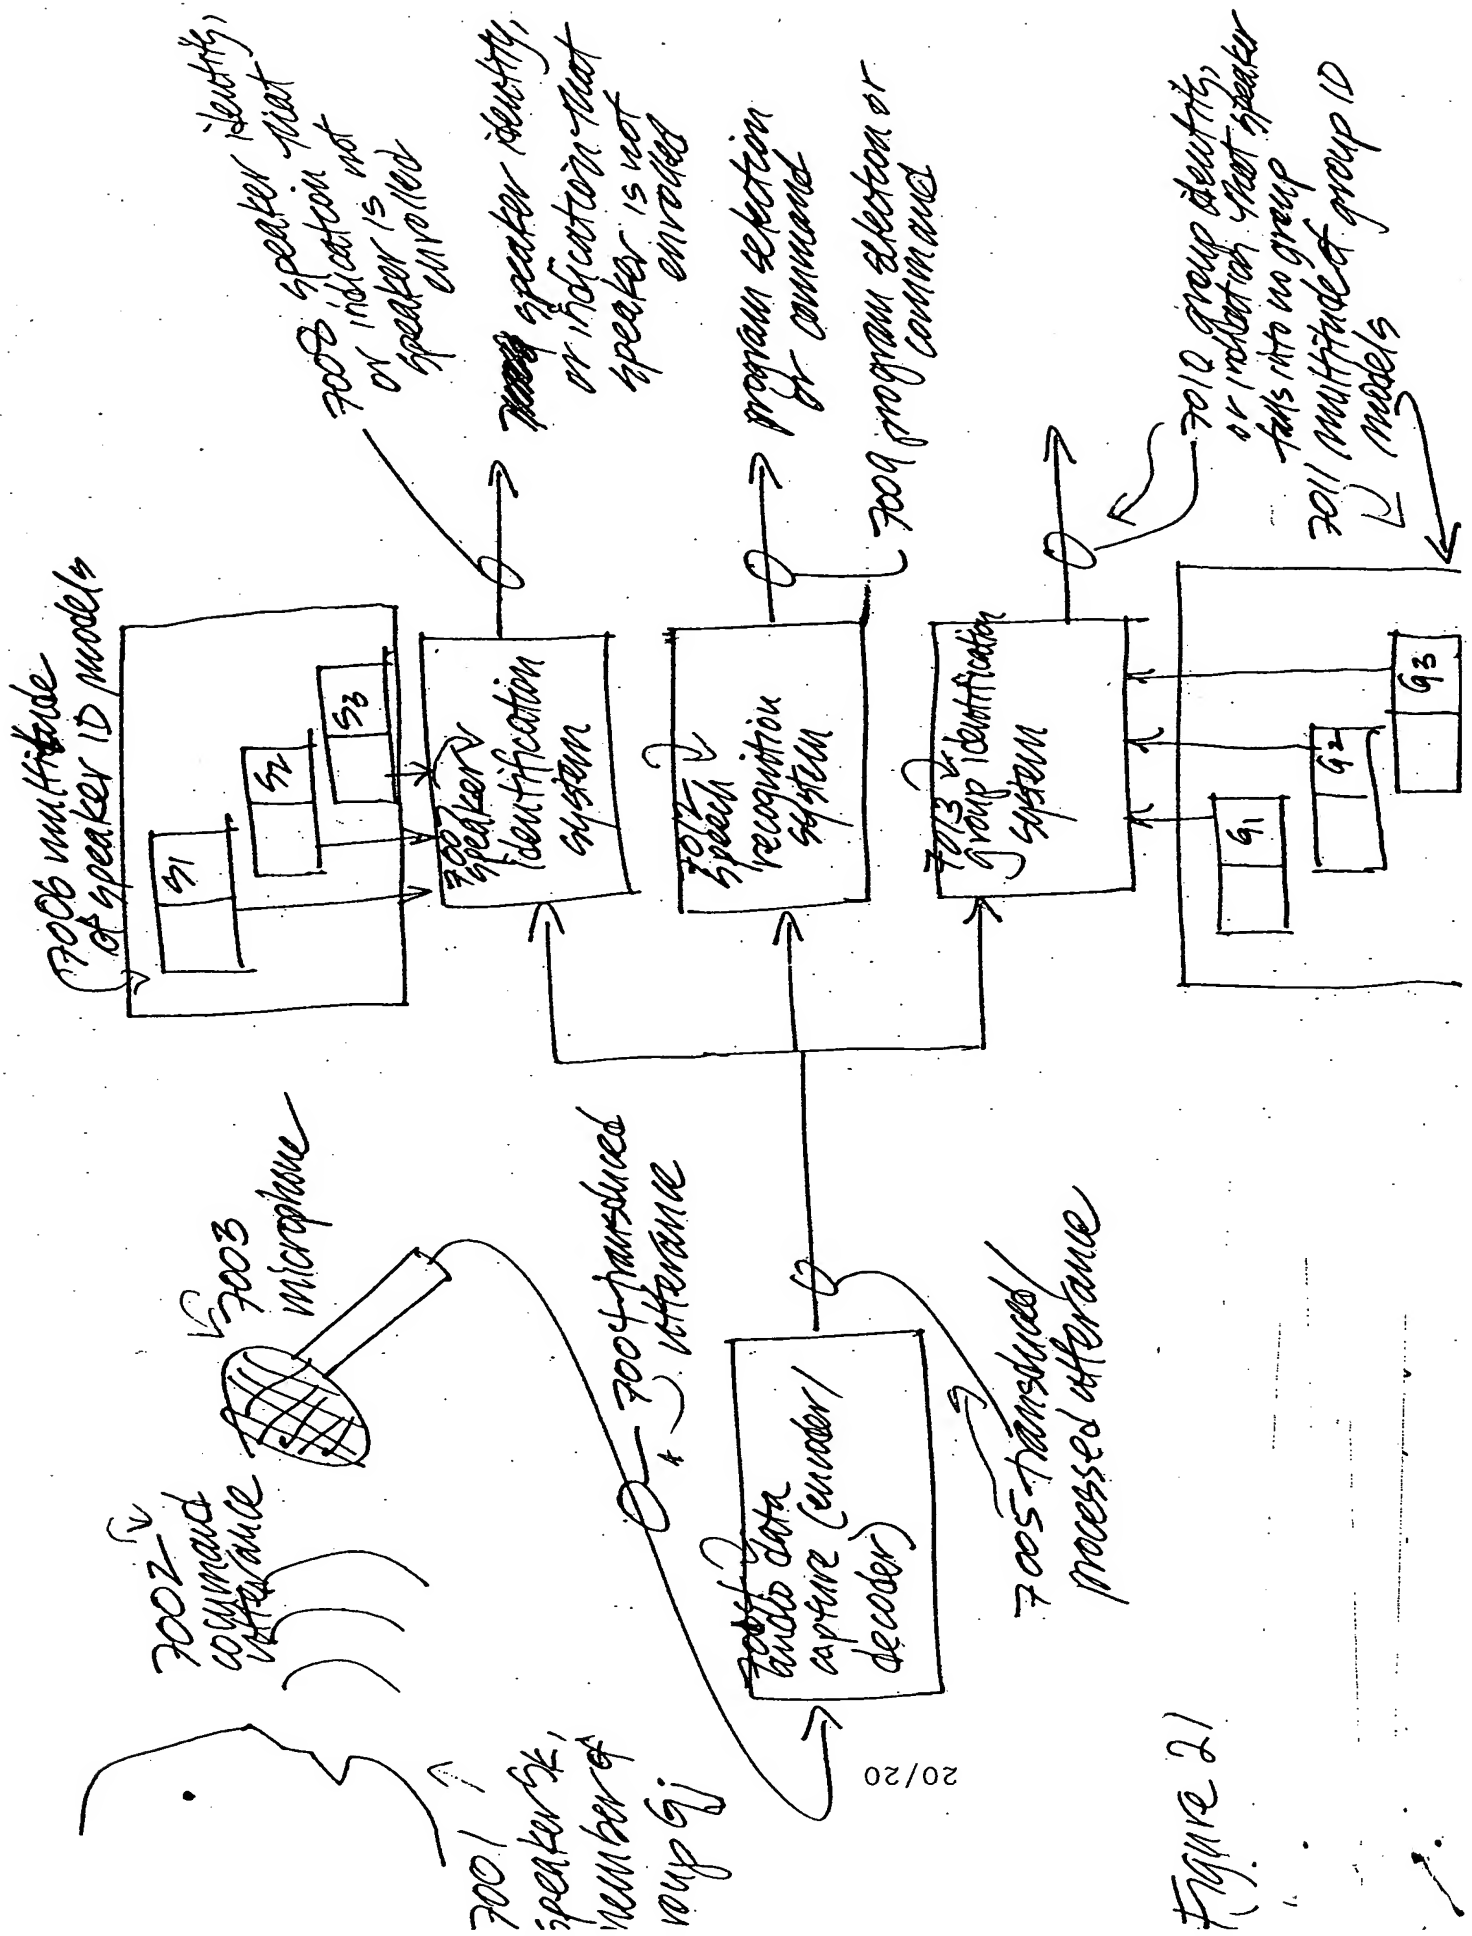 7001
speaker Sk,
member of
group Gj
7002
command
utterance
7003
microphone
7004 transduced
utterance
audio data
capture (encoder/
decoder)
7005 transduced/
processed utterance
7006 multitude
of speaker ID models
S1
S2
S3
speaker
identification
system
7012
speech
recognition
system
7013
group identification
system
G1
G2
G3
7008 speaker identity,
or indication that
speaker is not
enrolled
speaker identity,
or indication that
speaker is not
enrolled
program selection
or command
7009 program selection or
command
7010 group identity,
or indication that speaker
falls into no group
7011 multitude of group ID
models
20/20
Figure 21